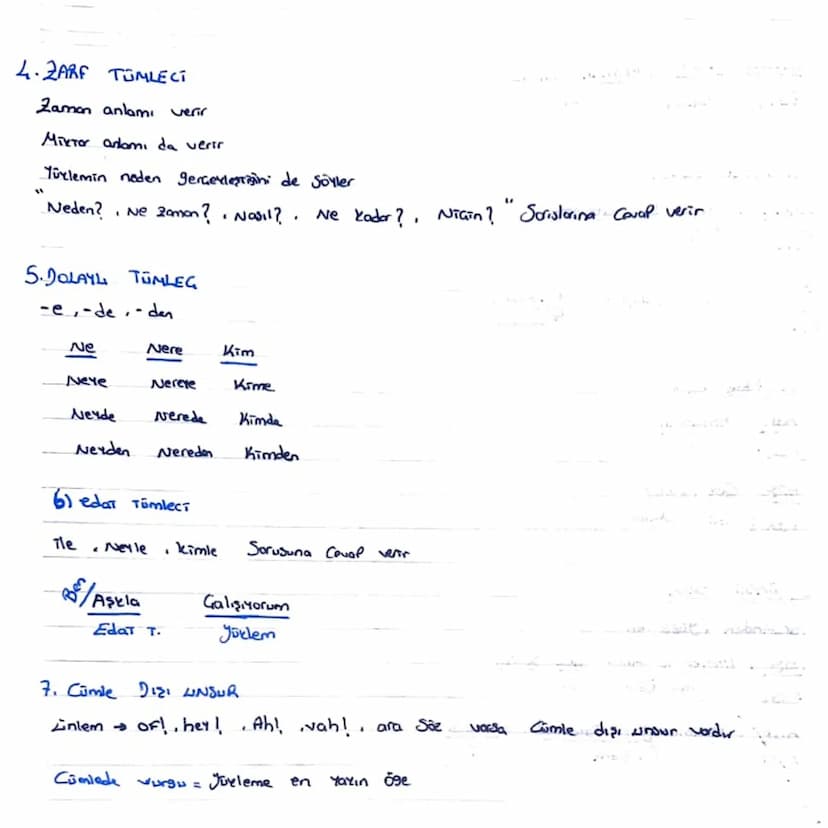 4. ZARF TÜMLECİ
Zaman anlamı verir
Miktar anlamı da verir
Yüklemin neden gerçekleştiğini de söyler
"Neden?, Ne zaman?, Nasıl?, Ne kadar?, Niçin?" Sorularına Cevap verir
5. DOLAYLI TÜMLEÇ
-e, -de, -den
Ne Nere Kim
Neye Nereye Kime
Neyde Nerede Kimde
Neyden Nereden Kimden
6) edat tümleci
ile, Neyle, kimle Sorusuna Cevap verir
Aşkla Çalışıyorum
Edat T. Yüklem
7. Cümle DIŞI UNSUR
ünlem → of!, hey!, Ah!, vah!, ara söz varsa Cümle dışı unsur vardır
Cümlede vurgu = Yükleme en yakın öge